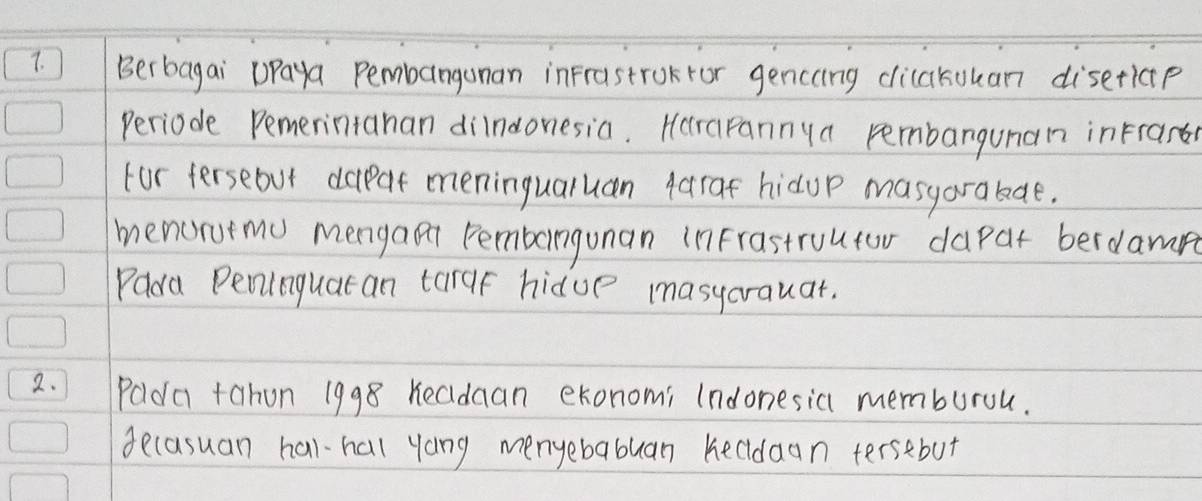 1. Berbagai upaya Pembangunan infrastruktur gencang dilakukan disetiap
Periode Pemerintahan diIndonesia. Harapannya pembangunan infrastr
tur tersebut dapat meningualuan taraf hidup masyarakat.
menurutmu mengapa Pembangunan infrastruktur dapat berdampa
Pada Peninguatan taraf hidup masyarakat.
2. Pada tahun 1998 keadaan ekonomi Indonesia memburuk.
Jelaskan hal-hal yang menyebabkan keadaan tersebut